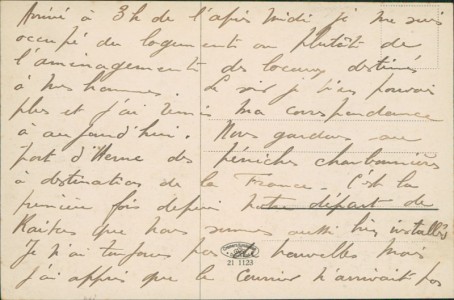 Arrivé à 3h de l'après midi je me suis
occupé du logement ou plutôt de
l'aménagement des locaux destinés
à mes hommes. Le soir je n'en pouvais
plus et j'ai remis ma correspondance
à aujourd'hui. Nous gardons au
port d'Herne des péniches charbonnières
à destination de la France. C'est la
première fois depuis notre départ de
que nous sommes aussi bien installés
Je n'ai toujours pas de nouvelles mais
j'ai appris que le courrier n'arrivait pas
21 1123